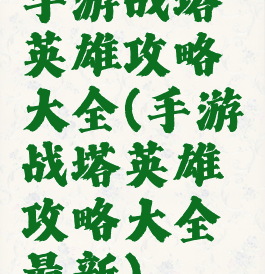 手游战塔
英雄攻略
大全(手游
战塔英雄
攻略大全
最新)